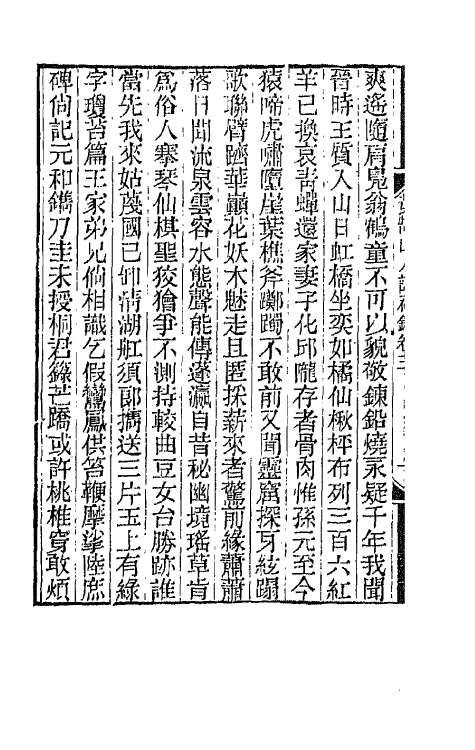 爽遙隨肩鳬翁鶴童不可以貌敬鍊鉛燒永疑千年我聞
晉時王質入山日虹橋坐奕如橘仙楸枰布列三百六紅
羊已換哀靑蟬還家妻子化邱隴存者骨肉惟孫元至今
猿啼虎嘯墮崖葉樵斧躑躅不敢前又聞靈窩探牙絃蹋
歌聯臂躋華巓花妖木魅走且匿採薪來者驚前緣蕭蕭
落日聞流泉雲容水態聲能傳蓬瀛自昔秘幽境瑤草肯
爲俗人搴琴仙棋聖狡獪爭不測持較曲豆女台勝跡誰
當先我來姑蔑國已卸淸湖舡須郞擕送三片玉上有綠
字瓊苔篇王家弟兄倘相識乞假鸞鳳供笞鞭摩挲陸庶
碑倘記元和鐫刀圭未授桐君籙芒蹻或許桃椎穿敢煩